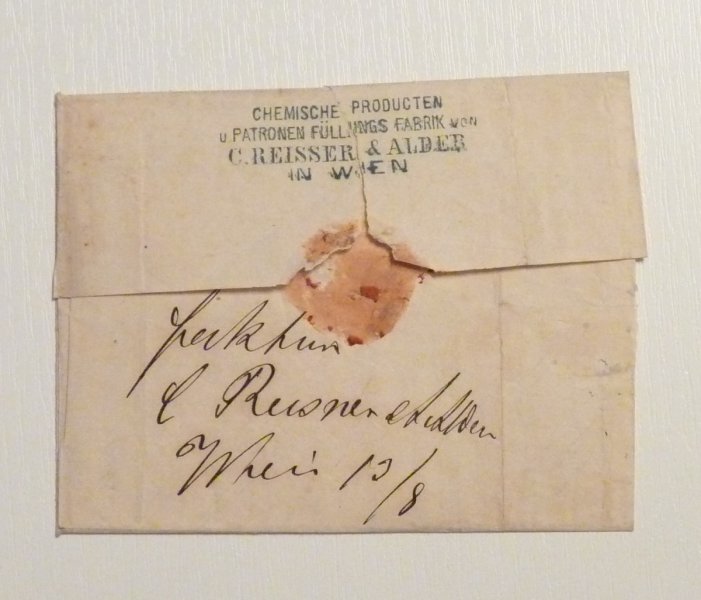 CHEMISCHE PRODUCTEN
U PATRONEN FÜLLUNGS FABRIK VON
C. REISSER & ALDER
IN WIEN
C Reisser & Alder
Wien 13/8